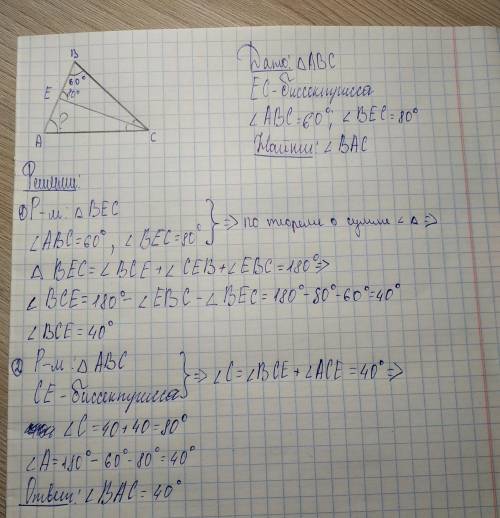 B
60°
E
80°
?
A
C
Дано: △ABC
EC-биссектрисса
∠ABC=60°; ∠BEC=80°
Найти: ∠BAC
Решение:
① Р-м: △BEC
∠ABC=60°, ∠BEC=80° } ⇒ по теореме о сумме ∠ △ ⇒
△ BEC=∠BCE+∠CEB+∠EBC=180°⇒
∠BCE=180°-∠EBC-∠BEC=180°-80°-60°=40°
∠BCE=40°
② Р-м: △ABC
CE-биссектрисса } ⇒ ∠C=∠BCE+∠ACE=40°⇒
∠C=40+40=80°
∠A=180°-60°-80°=40°
Ответ: ∠BAC=40°